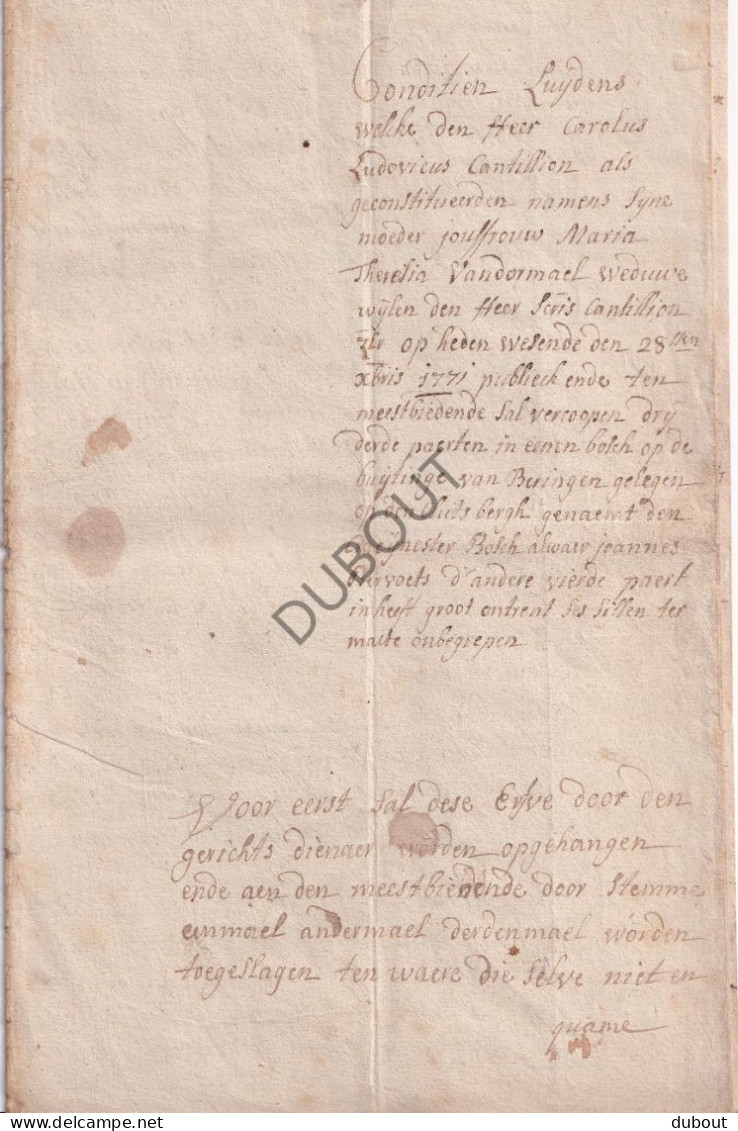 Conditien Luydens
welcke den Heer Carolus
Ludovicus Cantillion als
geconstitueerden namens syne
moeder jouffrouw Maria
Theresia Vandormael weduwe
wijlen den Heer Scris Cantillion
op heden wesende den 28 ten
xbris 1771 publieck ende ten
meestbiedende sal vercoopen drij
derde paerten in eenen bosch op de
buijtinge van Beringen gelegen
op den bergh genaemt den
Bosch alwaer joannes
Vervoets d'andere vierde paert
in heeft groot ontrent ses sillen ter
maete onbegrepen
Voor eerst sal dese Erfve door den
gerichts dienaer worden opgehangen
ende aen den meestbiendende door stemme
eenmael andermael derdenmael worden
toegeslagen ten waere die selve niet en
quame
DUBOUT
delcampe.net
dubout